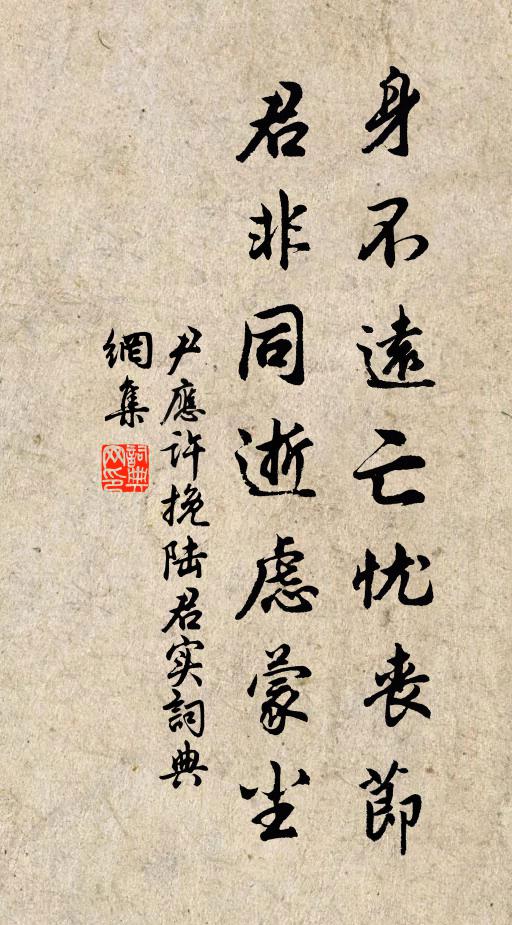 身不遠亡忧丧節
君非同逝慮蒙尘
尹應许挽陆君实詞典
網集
詞典网印